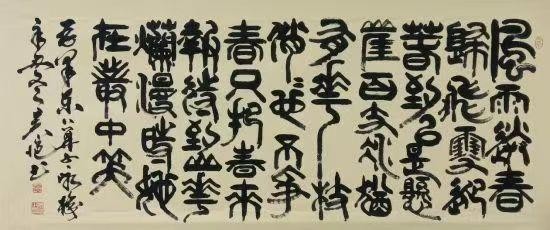 風雨送春
歸飛雪迎
春到已是懸
崖百丈冰猶
有花枝
俏也不爭
春只把春來
報待到山花
爛慢時她
在叢中笑
毛澤東卜算子詠梅
书